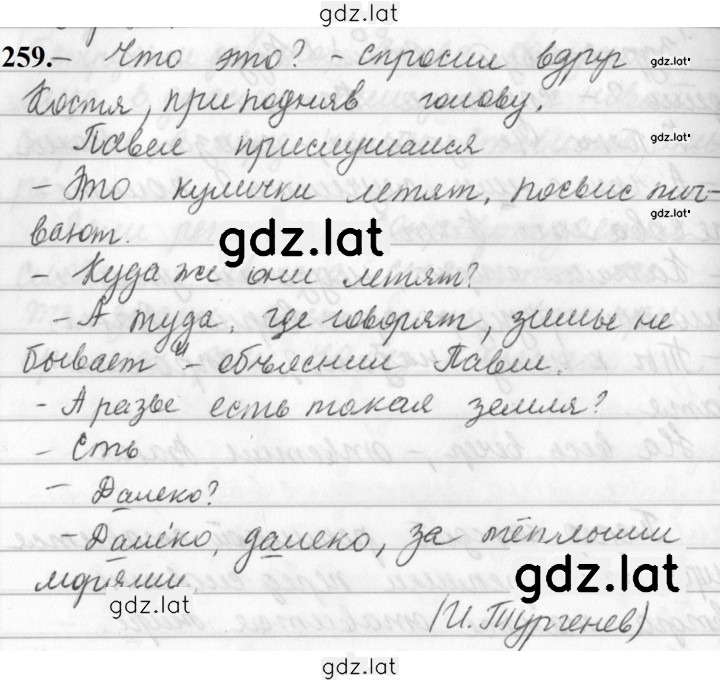 gdz.lat
259. – Что это? – спросил вдруг gdz.lat
Костя, приподняв голову.
Павел прислушался gdz.lat
– Это кулички летят, посвисты-
вают. gdz.lat gdz.lat
– Куда же они летят?
– А туда, где говорят, зимы не
бывает, – объяснил Павел.
– А разве есть такая земля?
– Есть
– Далеко?
– Далеко, далеко, за тёплыми
морями. gdz.lat
gdz.lat
(И. Тургенев)
gdz.lat